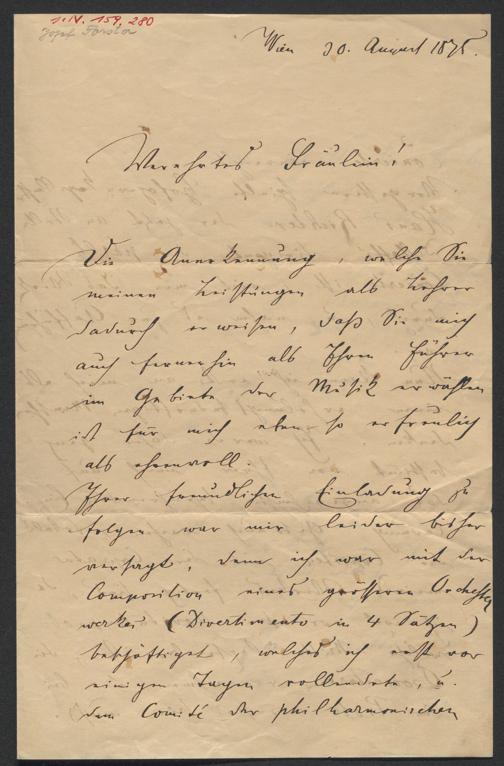 I.N. 159.280
Josef Forster
Wien 30. August 1875.
Verehrtes Fräulein!
Die Anerkennung, welche Sie
meinen Leistungen als Lehrer
dadurch erweisen, daß Sie mich
auch fernerhin als Ihren Führer
im Gebiete der Musik erwählen
ist für mich eben so erfreulich
als ehrenvoll.
Ihrer freundlichen Einladung zu
folgen war mir leider bisher
versagt, denn ich war mit der
Composition eines grösseren Orchester
werkes (Divertimento in 4 Sätzen)
beschäftiget, welches ich erst vor
einigen Tagen vollendete, u.
dem Comité der philharmonischen